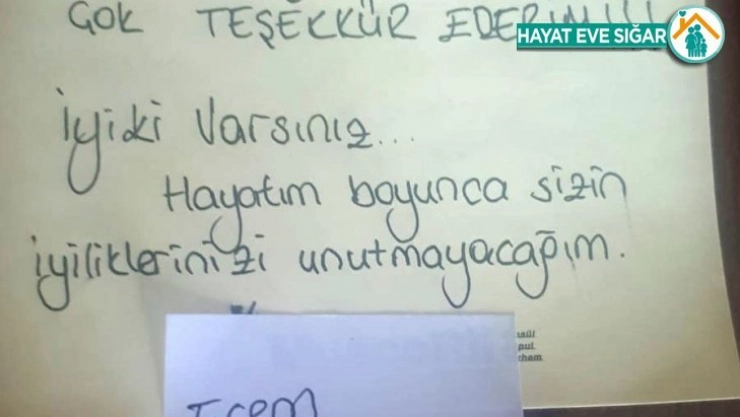 ÇOK TEŞEKKÜR EDERİM!!!
HAYAT EVE SIĞAR
İyiki Varsınız...
Hayatım boyunca sizin
iyiliklerinizi unutmayacağım.
pul.